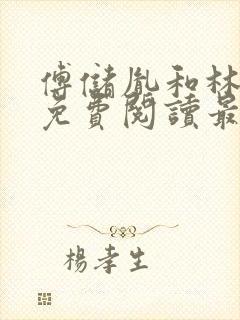 傅儲胤和林
免費閱讀最
楊孝生